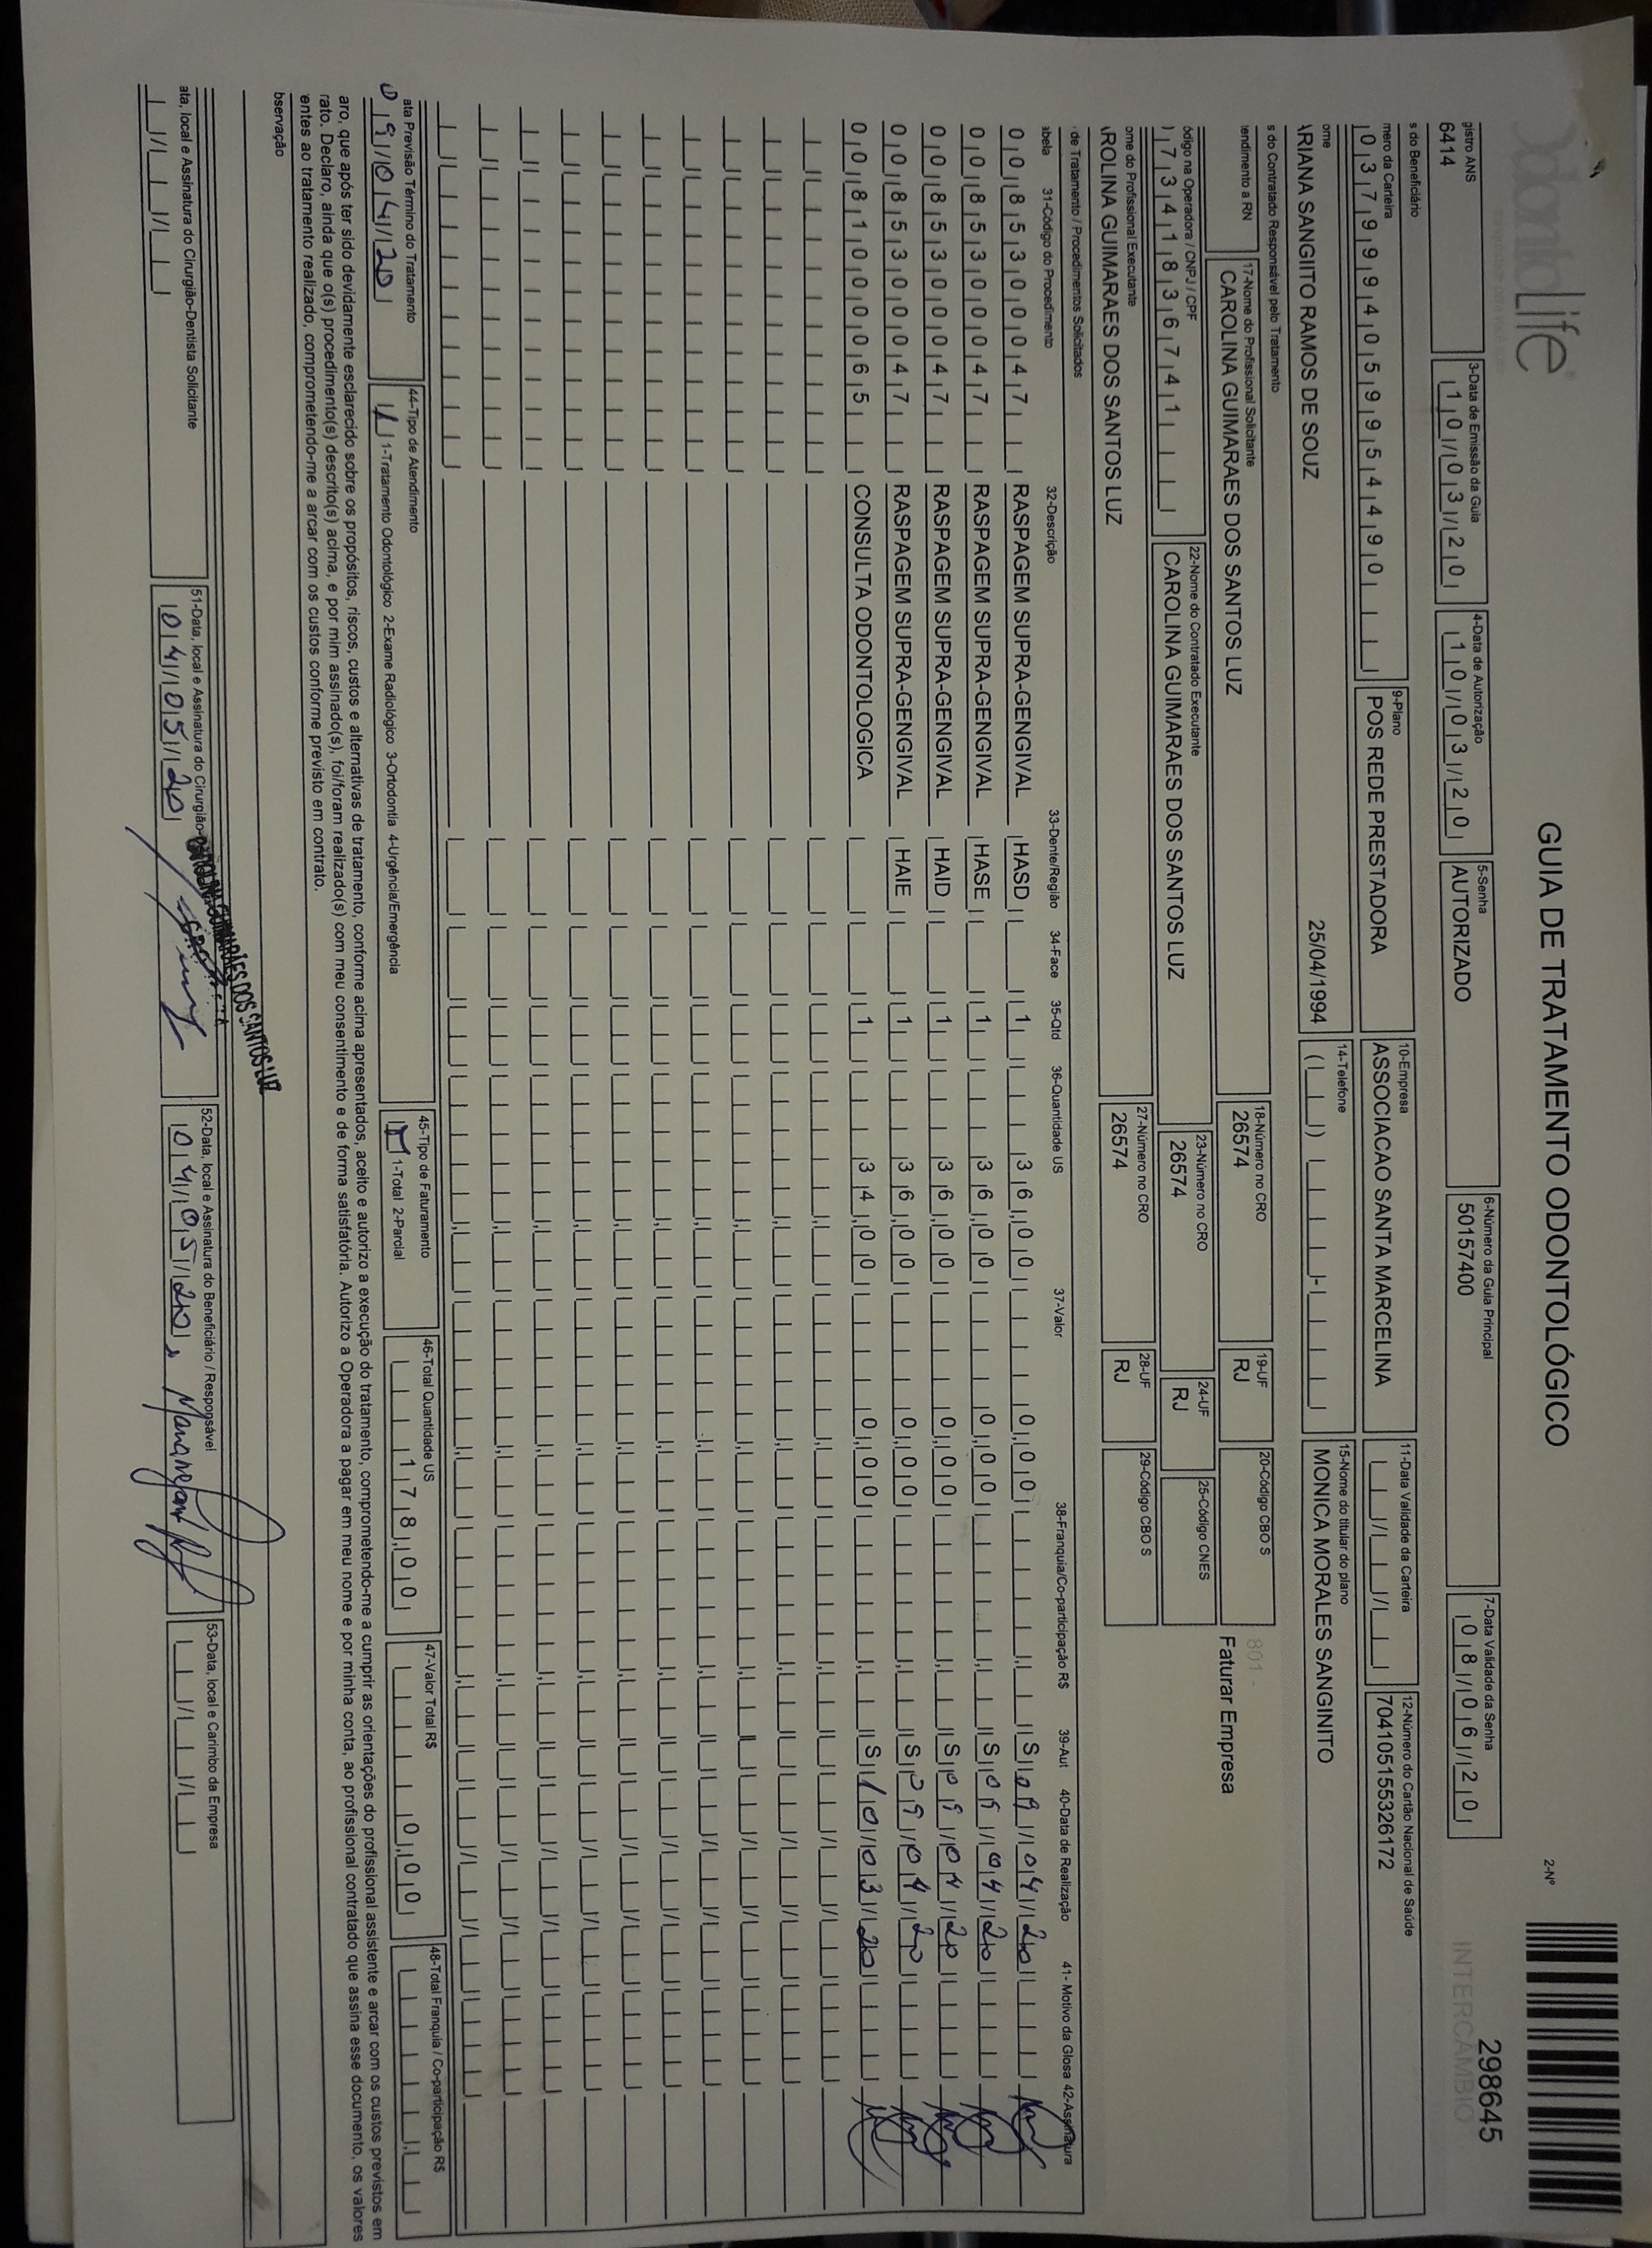 OdontoLife
GUIA DE TRATAMENTO ODONTOLÓGICO
2-Nº 298645
INTERCAMBIO
gistro ANS 3-Data de Emissão da Guia 4-Data de Autorização 5-Senha 6-Número da Guia Principal 7-Data Validade da Senha
6414 10/03/20 10/03/20 AUTORIZADO 50157400 08/06/20
s do Beneficiário
mero da Carteira 9-Plano 10-Empresa 11-Data Validade da Carteira 12-Número do Cartão Nacional de Saúde
03799940599954490 POS REDE PRESTADORA ASSOCIACAO SANTA MARCELINA 704105155326172
ome 14-Telefone 15-Nome do titular do plano
ARIANA SANGIITO RAMOS DE SOUZ 25/04/1994 MONICA MORALES SANGINITO
s do Contratado Responsável pelo Tratamento
endimento a RN 17-Nome do Profissional Solicitante 18-Número no CRO 19-UF 20-Código CBO S
CAROLINA GUIMARAES DOS SANTOS LUZ 26574 RJ
801 -
Faturar Empresa
ódigo na Operadora / CNPJ / CPF 22-Nome do Contratado Executante 23-Número no CRO 24-UF 25-Código CNES
)7341836741 CAROLINA GUIMARAES DOS SANTOS LUZ 26574 RJ
ome do Profissional Executante 27-Número no CRO 28-UF 29-Código CBO S
AROLINA GUIMARAES DOS SANTOS LUZ 26574 RJ
de Tratamento / Procedimentos Solicitados
abela 31-Código do Procedimento 32-Descrição 33-Dente/Região 34-Face 35-Qtd 36-Quantidade US 37-Valor 38-Franquia/Co-participação R$ 39-Aut 40-Data de Realização 41- Motivo da Glosa 42-Assinatura
00 85300047 RASPAGEM SUPRA-GENGIVAL HASD 1 36,00 0,00 S 09/04/20
00 85300047 RASPAGEM SUPRA-GENGIVAL HASE 1 36,00 0,00 S 09/04/20
00 85300047 RASPAGEM SUPRA-GENGIVAL HAID 1 36,00 0,00 S 09/04/20
00 85300047 RASPAGEM SUPRA-GENGIVAL HAIE 1 36,00 0,00 S 09/04/20
00 81000065 CONSULTA ODONTOLOGICA 1 34,00 0,00 S 10/03/20
ata Previsão Término do Tratamento 44-Tipo de Atendimento 45-Tipo de Faturamento 46-Total Quantidade US 47-Valor Total R$ 48-Total Franquia / Co-participação R$
09/04/20 1 1-Tratamento Odontológico 2-Exame Radiológico 3-Ortodontia 4-Urgência/Emergência 1 1-Total 2-Parcial 178,00 0,00
aro, que após ter sido devidamente esclarecido sobre os propósitos, riscos, custos e alternativas de tratamento, conforme acima apresentados, aceito e autorizo a execução do tratamento, comprometendo-me a cumprir as orientações do profissional assistente e arcar com os custos previstos em
rato. Declaro, ainda que o(s) procedimento(s) descrito(s) acima, e por mim assinado(s), foi/foram realizado(s) com meu consentimento e de forma satisfatória. Autorizo a Operadora a pagar em meu nome e por minha conta, ao profissional contratado que assina esse documento, os valores
entes ao tratamento realizado, comprometendo-me a arcar com os custos conforme previsto em contrato.
bservação
CAROLINA GUIMARÃES DOS SANTOS LUZ
ata, local e Assinatura do Cirurgião-Dentista Solicitante 51-Data, local e Assinatura do Cirurgião- 52-Data, local e Assinatura do Beneficiário / Responsável 53-Data, local e Carimbo da Empresa
04/05/20 04/05/20